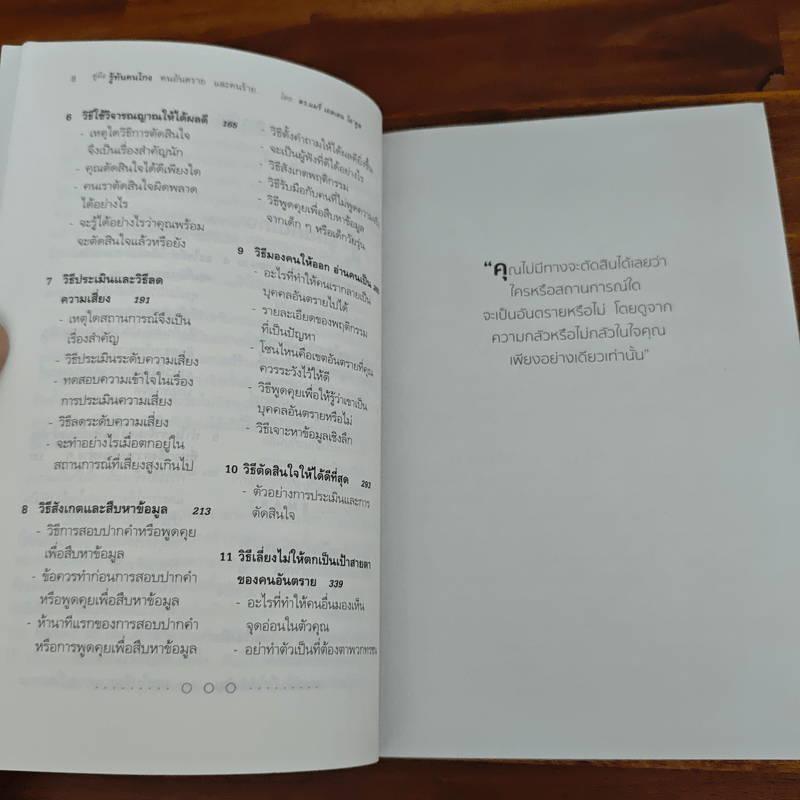 8 คู่มือ รู้ทันคนโกง คนอันตราย และคนร้าย...
โดย ดร.แมรี่ เอลเลน
6 วิธีใช้วิจารณญาณให้ได้ผลดี 165
- เหตุใดวิธีการตัดสินใจ
จึงเป็นเรื่องสำคัญนัก
- คุณตัดสินใจได้ดีเพียงใด
- คนเราตัดสินใจผิดพลาด
ได้อย่างไร
- จะรู้ได้อย่างไรว่าคุณพร้อม
จะตัดสินใจแล้วหรือยัง
7 วิธีประเมินและวิธีลด
ความเสี่ยง 191
- เหตุใดสถานการณ์จึงเป็น
เรื่องสำคัญ
- วิธีประเมินระดับความเสี่ยง
- ทดสอบความเข้าใจในเรื่อง
การประเมินความเสี่ยง
- วิธีลดระดับความเสี่ยง
- จะทำอย่างไรเมื่อตกอยู่ใน
สถานการณ์ที่เสี่ยงสูงเกินไป
8 วิธีสังเกตและสืบหาข้อมูล 213
- วิธีการสอบปากคำหรือพูดคุย
เพื่อสืบหาข้อมูล
- ข้อควรทำก่อนการสอบปากคำ
หรือพูดคุยเพื่อสืบหาข้อมูล
- ห้านาทีแรกของการสอบปากคำ
หรือการพูดคุยเพื่อสืบหาข้อมูล
- วิธีตั้งคำถามให้ได้ผลดียิ่งขึ้น
- จะเป็นผู้ฟังที่ดีได้อย่างไร
- วิธีสังเกตพฤติกรรม
- วิธีรับมือกับคนที่ไม่พูดความจริง
- วิธีพูดคุยเพื่อสืบหาข้อมูล
จากเด็ก ๆ หรือเด็กวัยรุ่น
9 วิธีมองคนให้ออก อ่านคนเป็น
- อะไรที่ทำให้คนเรากลายเป็น
บุคคลอันตรายไปได้
- รายละเอียดของพฤติกรรม
ที่เป็นปัญหา
- โซนไหนคือเขตอันตรายที่คุณ
ควรระวังไว้ให้ดี
- วิธีพูดคุยเพื่อให้รู้ว่าเขาเป็น
บุคคลอันตรายหรือไม่
- วิธีเจาะหาข้อมูลเชิงลึก
10 วิธีตัดสินใจให้ได้ดีที่สุด 293
- ตัวอย่างการประเมินและการ
ตัดสินใจ
11 วิธีเลี่ยงไม่ให้ตกเป็นเป้าสายตา
ของคนอันตราย 339
- อะไรที่ทำให้คนอื่นมองเห็น
จุดอ่อนในตัวคุณ
- อย่าทำตัวเป็นที่ต้องตาพวกทรชน
“คุณไม่มีทางจะตัดสินได้เลยว่า
ใครหรือสถานการณ์ใด
จะเป็นอันตรายหรือไม่ โดยดูจาก
ความกลัวหรือไม่กลัวในใจคุณ
เพียงอย่างเดียวเท่านั้น”